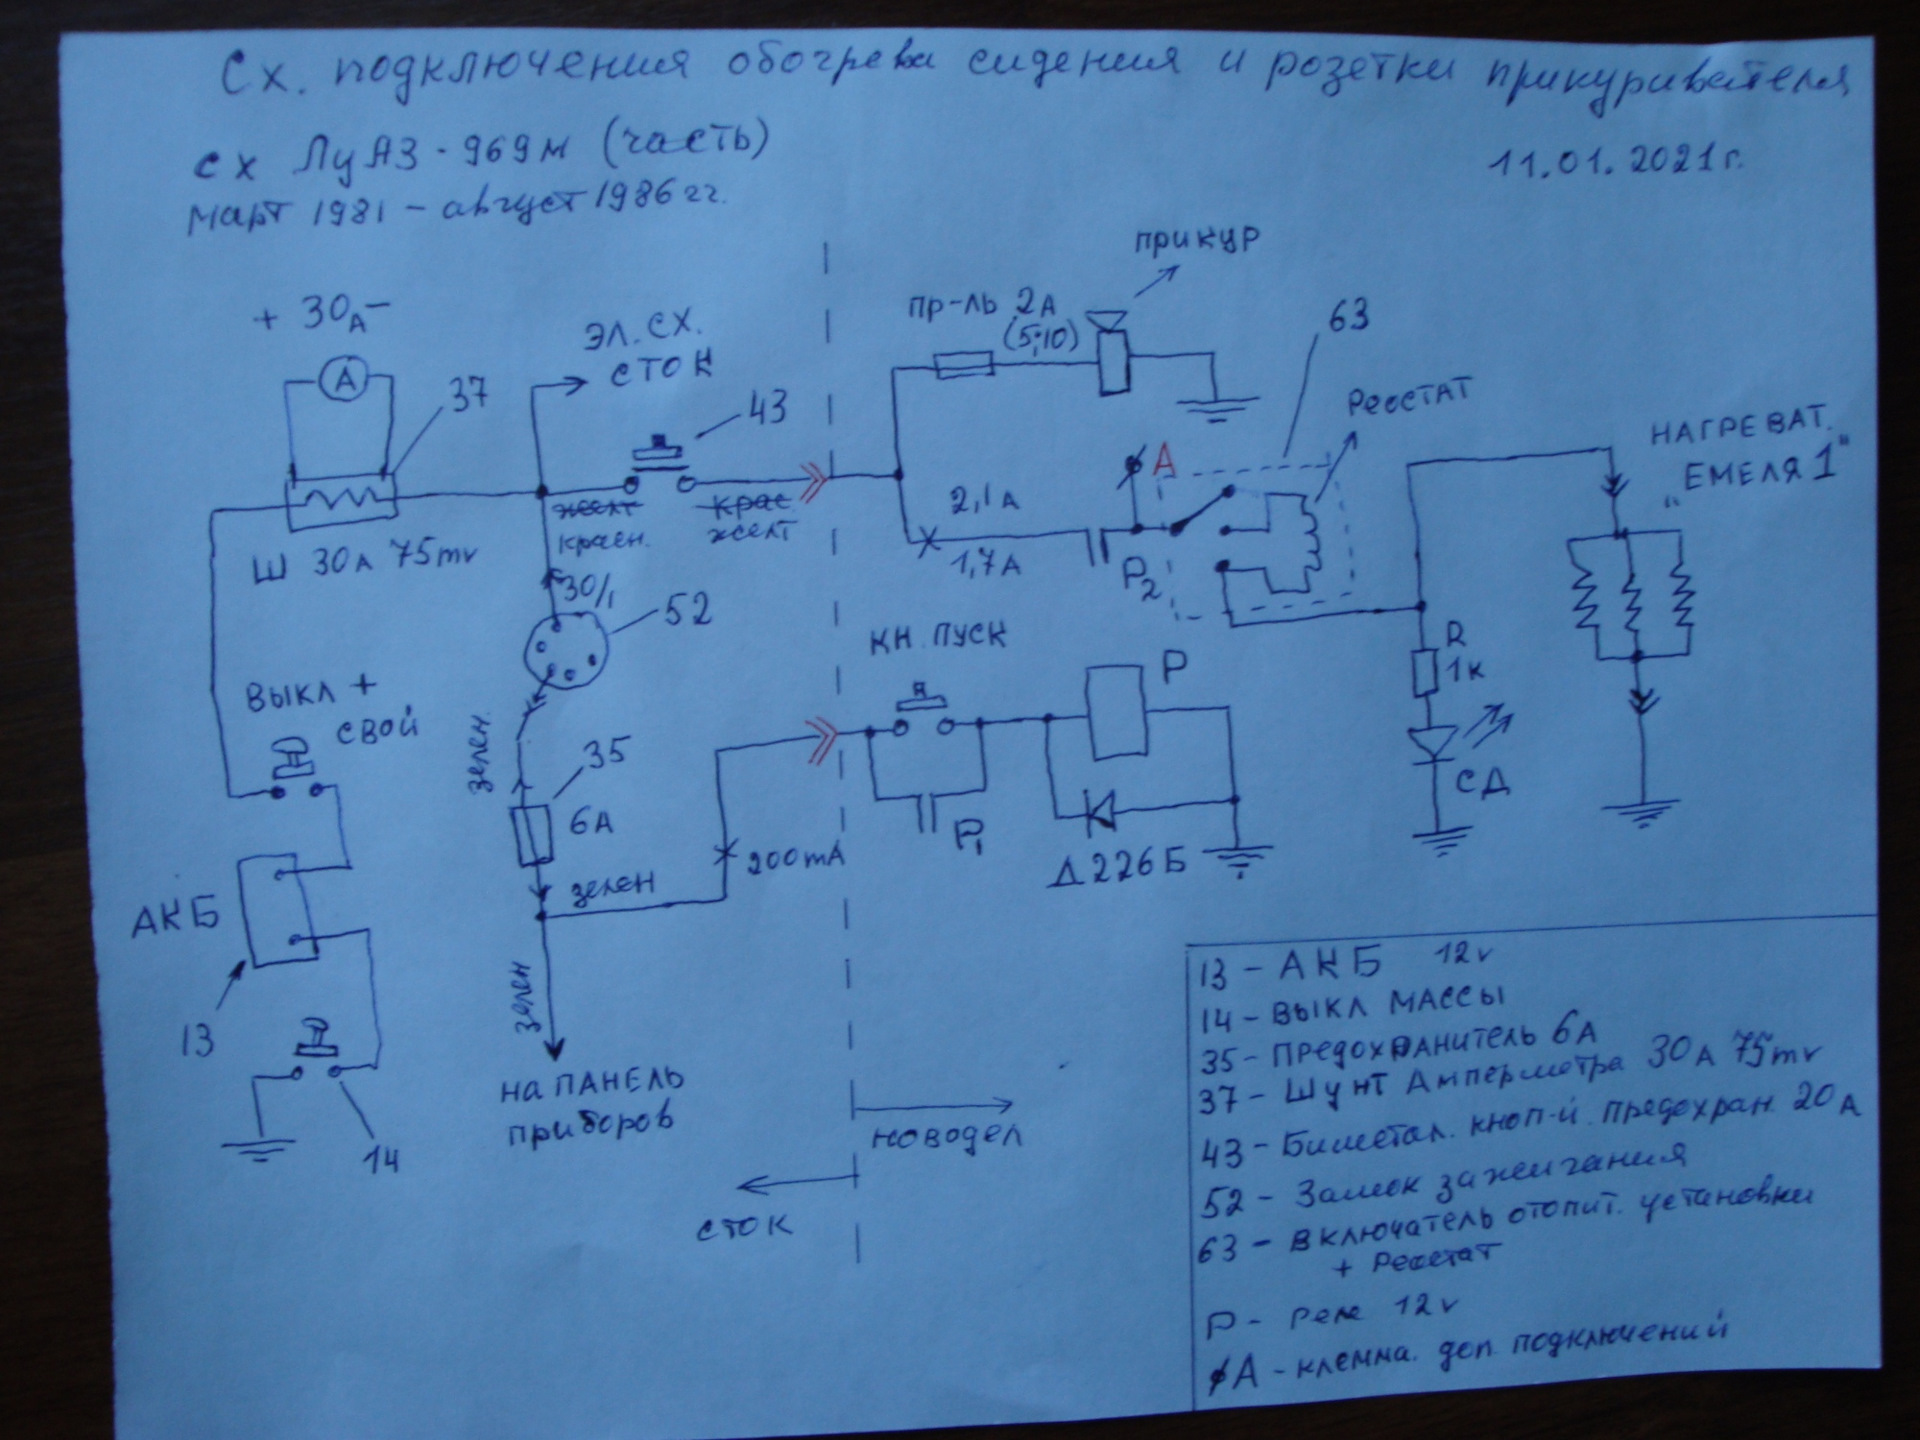 Сх. подключения обогрева сидения и розетки прикуривателя
сх ЛуАЗ-969м (часть)
11.01.2021г.
март 1981 - август 1986гг.
прикур
+ 30А -
А
37
эл. сх.
сток
43
пр-ль 2А
(5;10)
63
Реостат
А
НАГРЕВАТ.
"ЕМЕЛЯ 1"
желт
красн.
крас
желт
2,1А
1,7А
Р2
Ш 30А 75mv
30/1
52
кн. пуск
Р
R
1к
выкл +
свой
зелен.
35
6А
СД
200mA
Р1
Д226Б
зелен
АКБ
13
зелен
14
на ПАНЕЛЬ
приборов
новодел
сток
13 - АКБ 12v
14 - выкл массы
35 - предохранитель 6А
37 - Шунт Амперметра 30А 75mv
43 - Биметал. кноп-й. предохран. 20А
52 - Замок зажигания
63 - включатель отопит. установки
+ Реостат
Р - реле 12v
А - клемма. доп. подключений